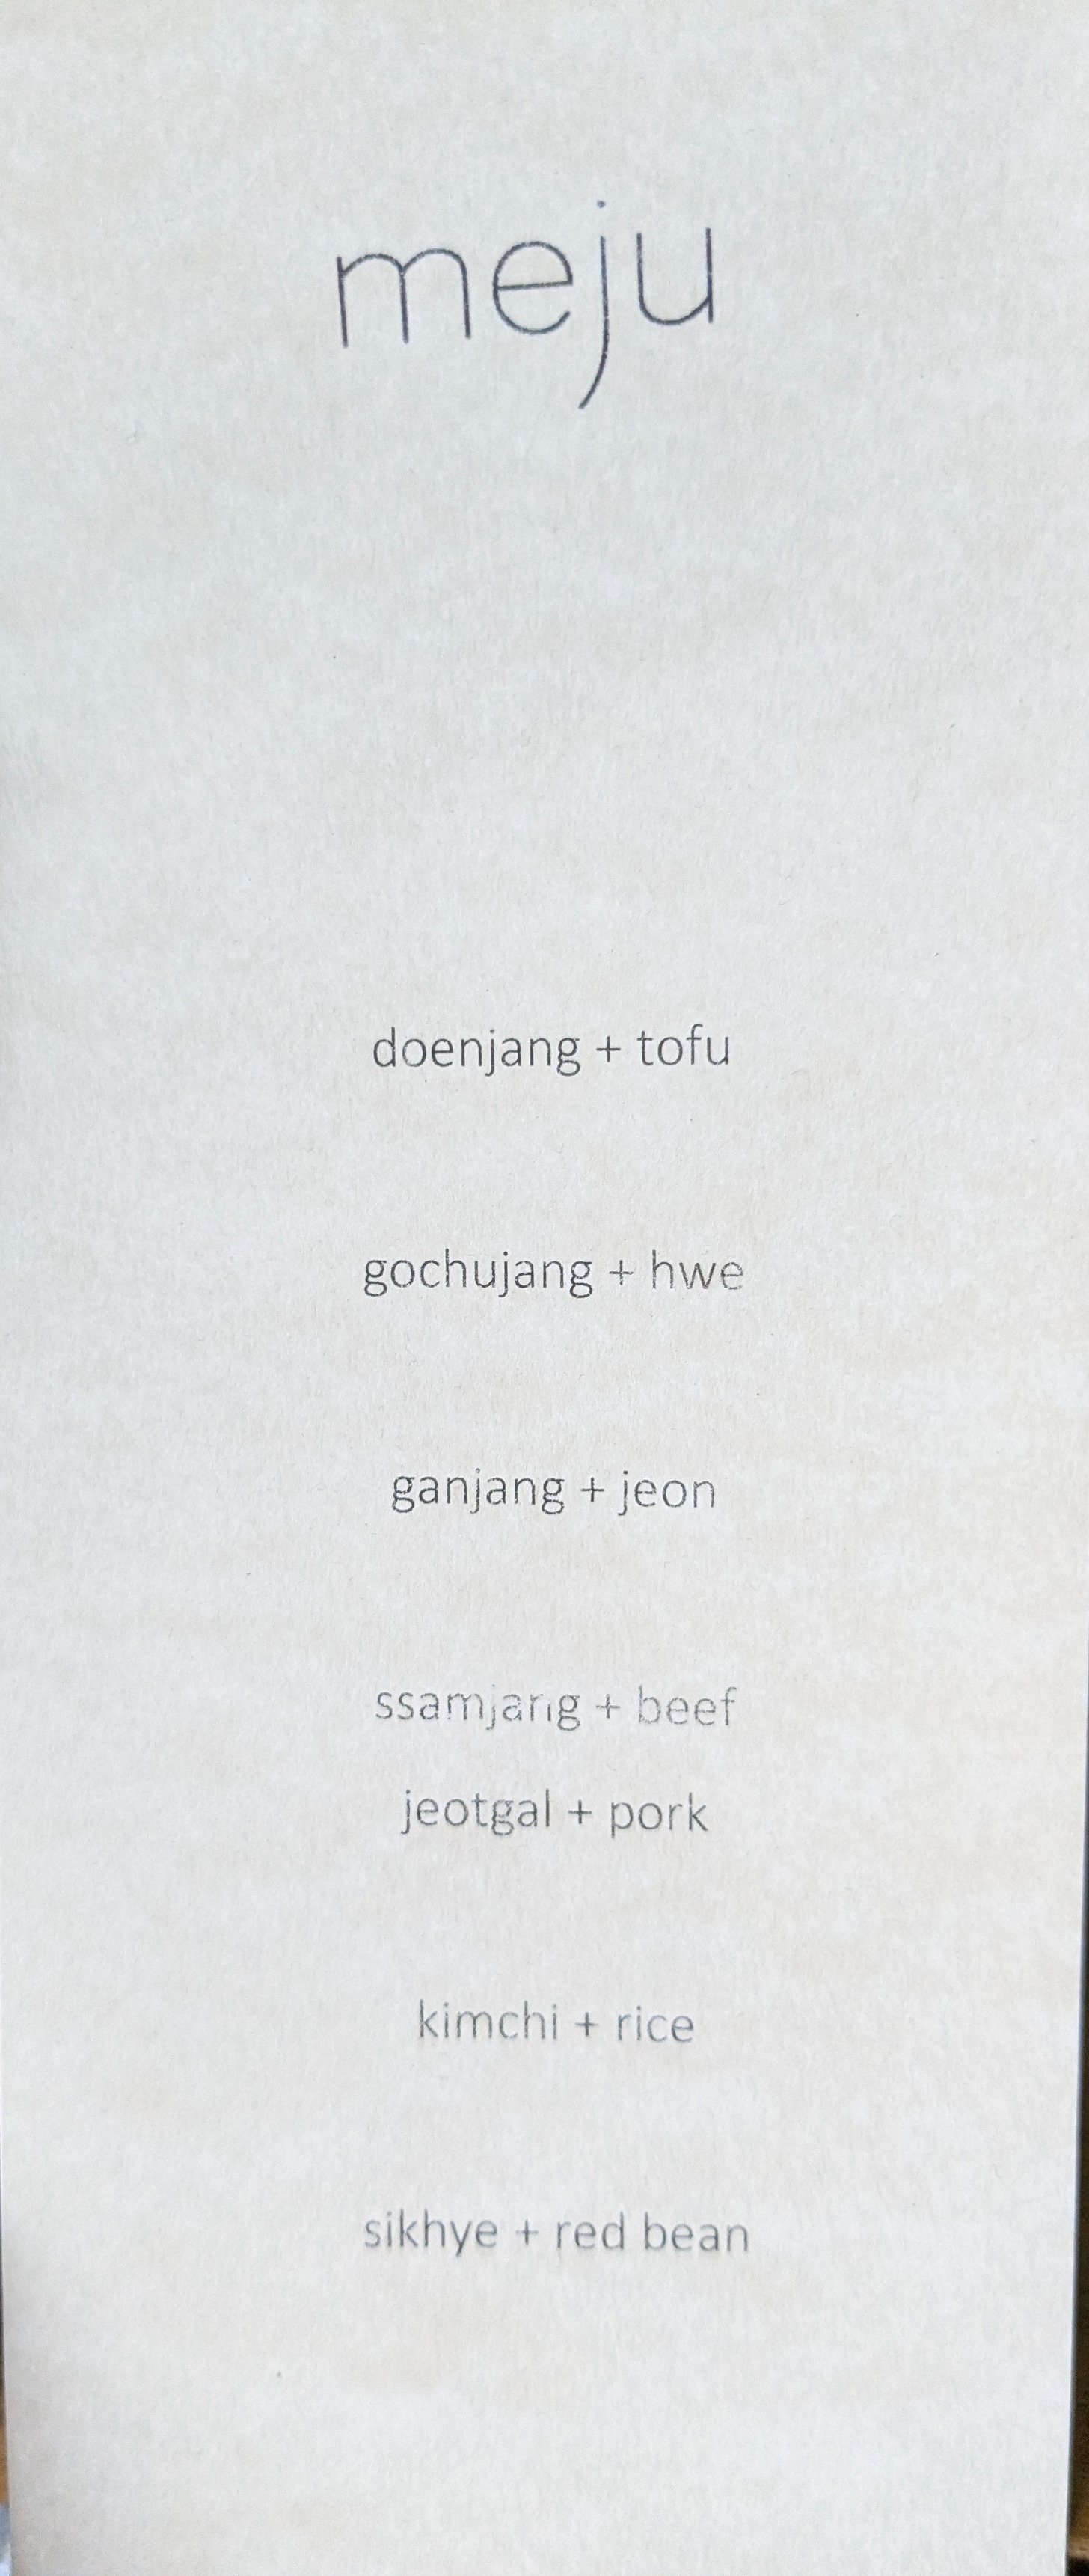 meju
doenjang + tofu
gochujang + hwe
ganjang + jeon
ssamjang + beef
jeotgal + pork
kimchi + rice
sikhye + red bean